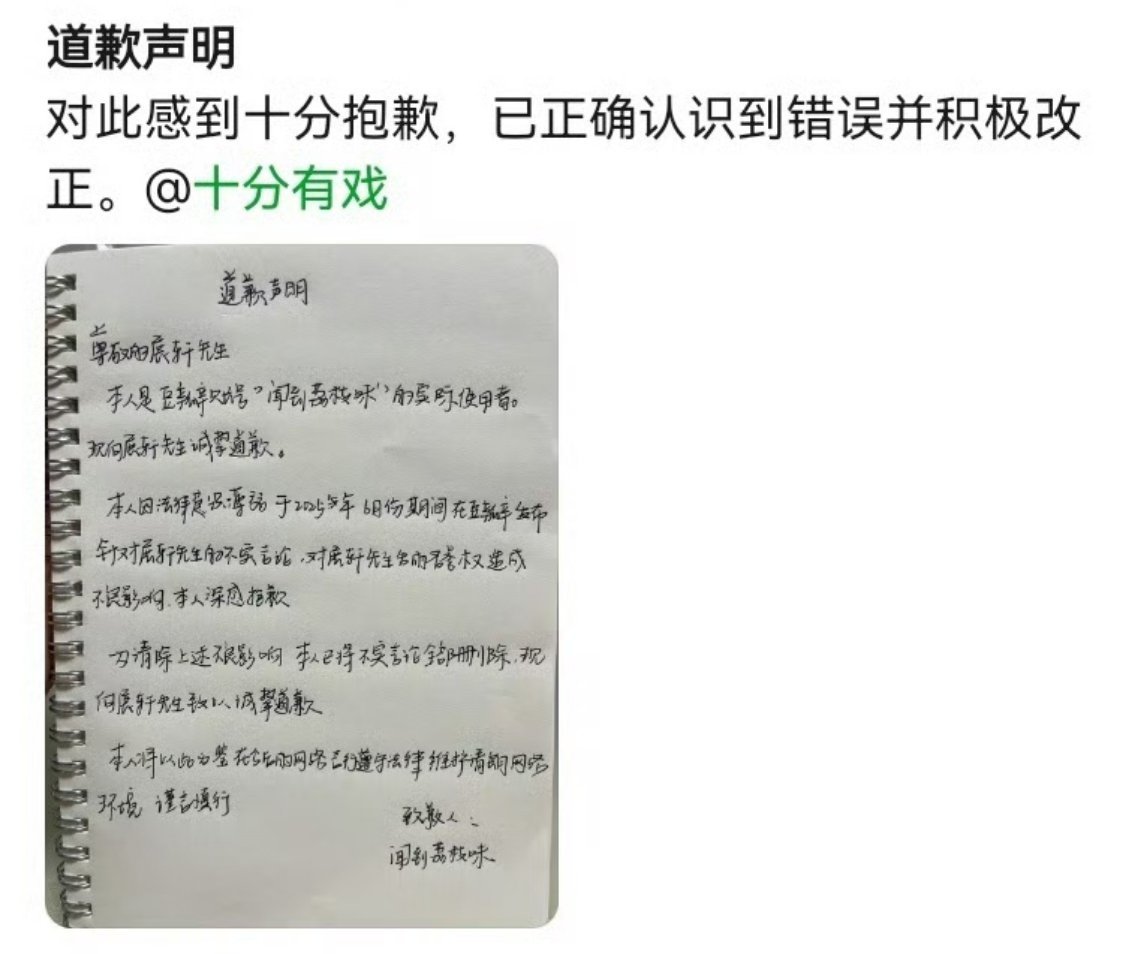 道歉声明
对此感到十分抱歉，已正确认识到错误并积极改
正。@十分有戏
道歉声明
尊敬的展轩先生
本人是豆瓣账号"闻到荔枝味"的实际使用者。
现向展轩先生诚挚道歉。
本人因法律意识薄弱 于2025年 6月份期间在豆瓣发布
针对展轩先生的不实言论，对展轩先生的名誉权造成
不良影响，本人深感抱歉
为清除上述不良影响 本人已将不实言论全部删除，现
向展轩先生致以诚挚道歉
本人将以此为鉴 在今后的网络言行遵守法律 维护清朗网络
环境 谨言慎行
致歉人：
闻到荔枝味